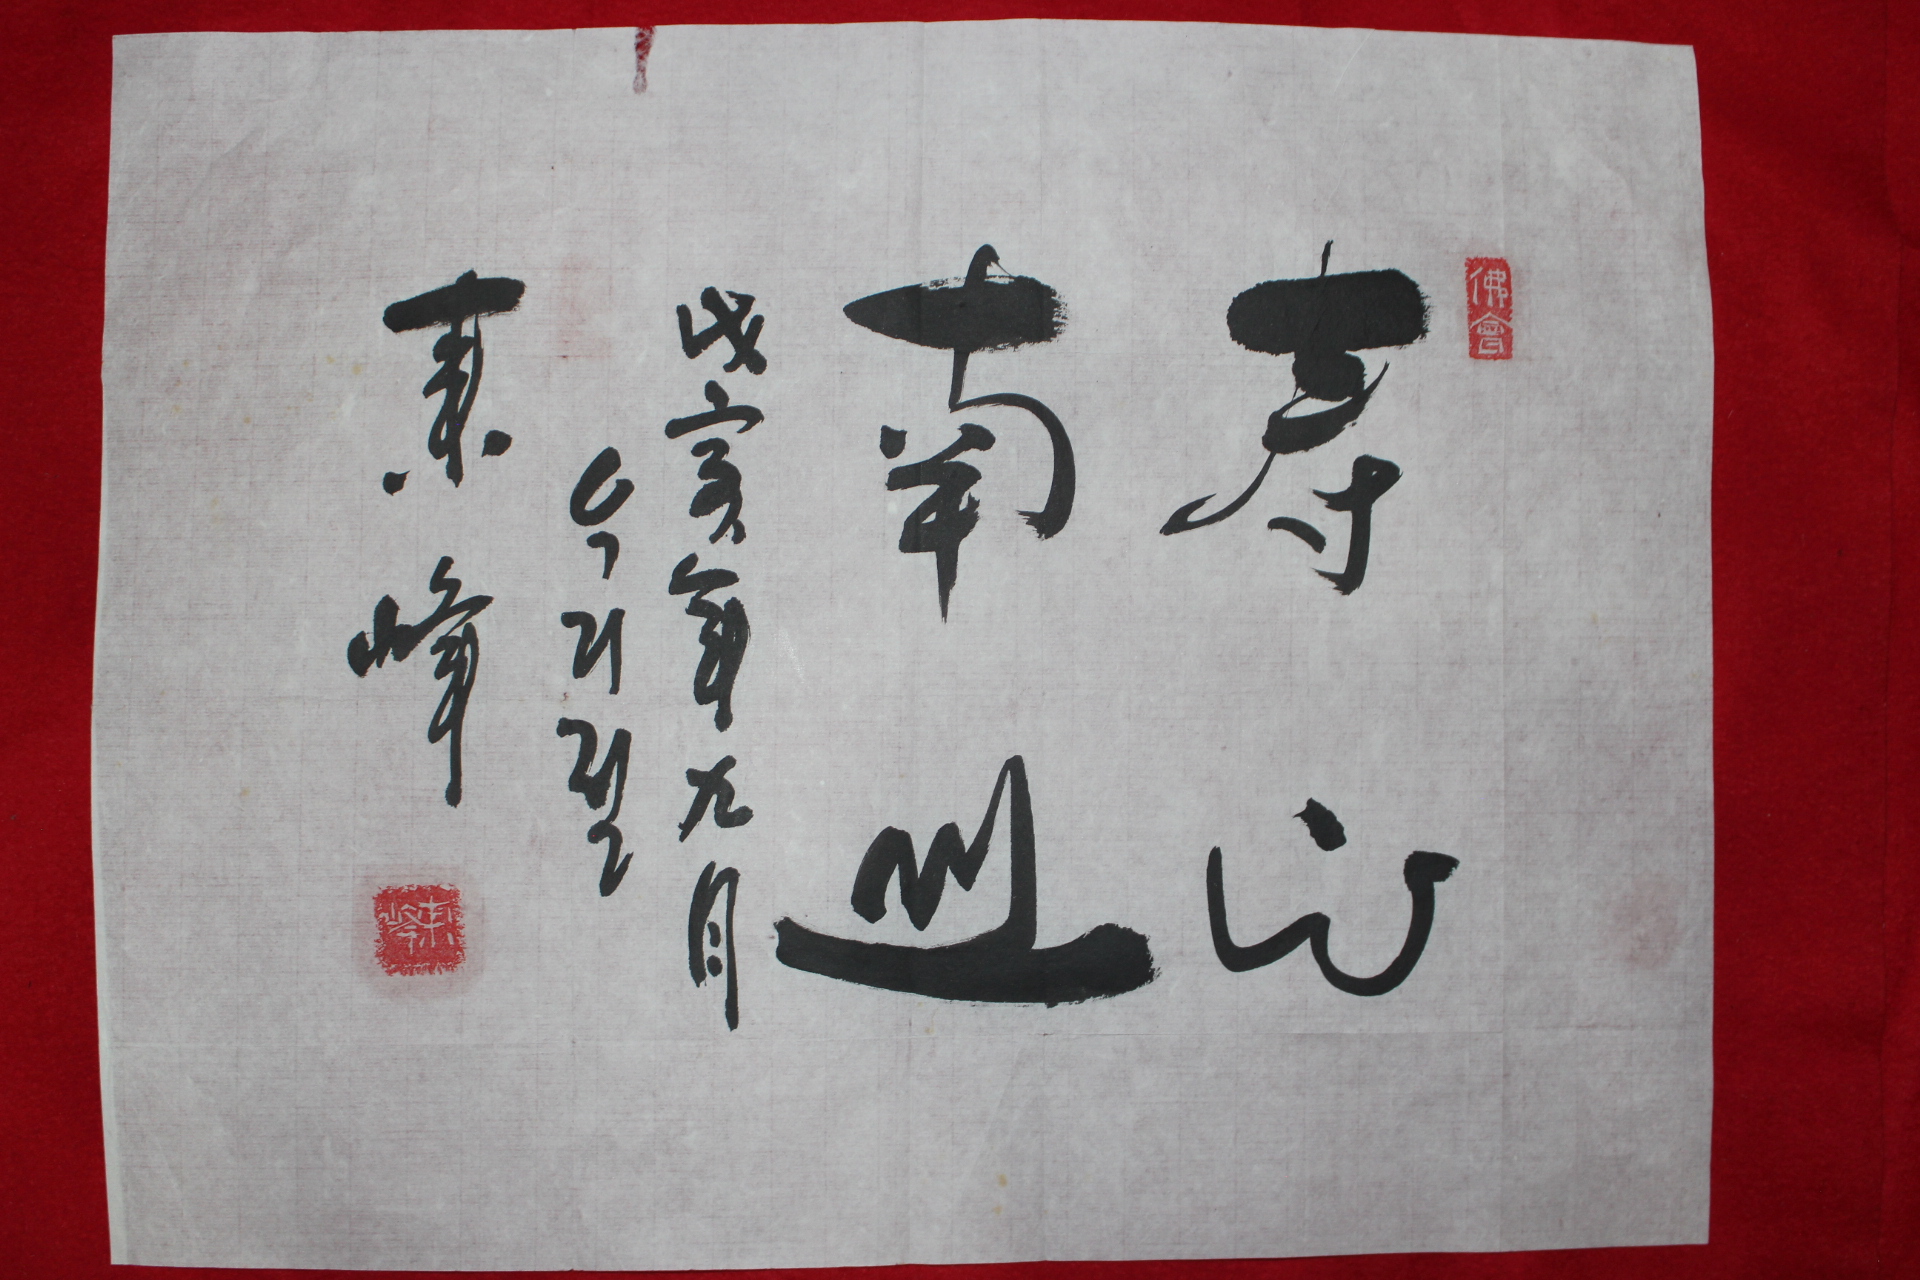 佛會
壽比
南山
戊寅年九月
東峰
東峰